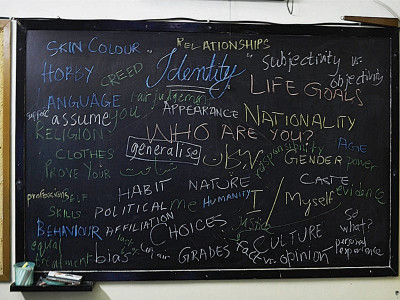 RELATIONSHIPS
SKIN COLOUR
"Identity"
subjectivity vs.
objectivity
HOBBY
CREED
LIFE GOALS
LANGUAGE
APPEARANCE
assume
you
NATIONALITY
RELIGION
WHO ARE YOU?
generalise
responsibility
AGE
CLOTHES
GENDER
power
PROVE YOUR
SELF
HABIT
NATURE
CASTE
evidence
profession
SKILLS
POLITICAL
AFFILIATION
me
HUMANITY
I
Myself
BEHAVIOUR
CHOICES?
Justice
So
what?
personal
experience
equal
treatment
bias
GRADES
CULTURE
Fact vs. opinion